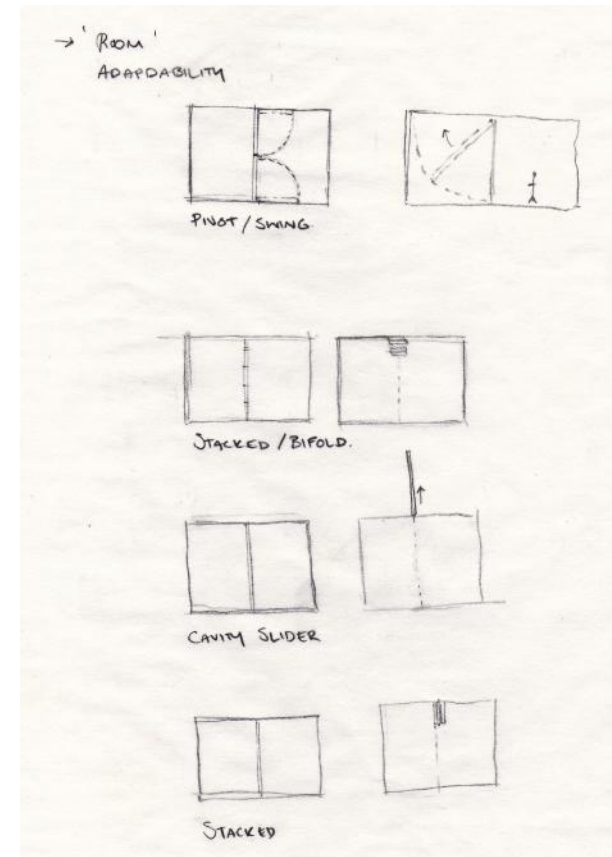 → 'ROOM'
ADAPDABILITY
PIVOT / SWING.
STACKED / BIFOLD.
CAVITY SLIDER
STACKED